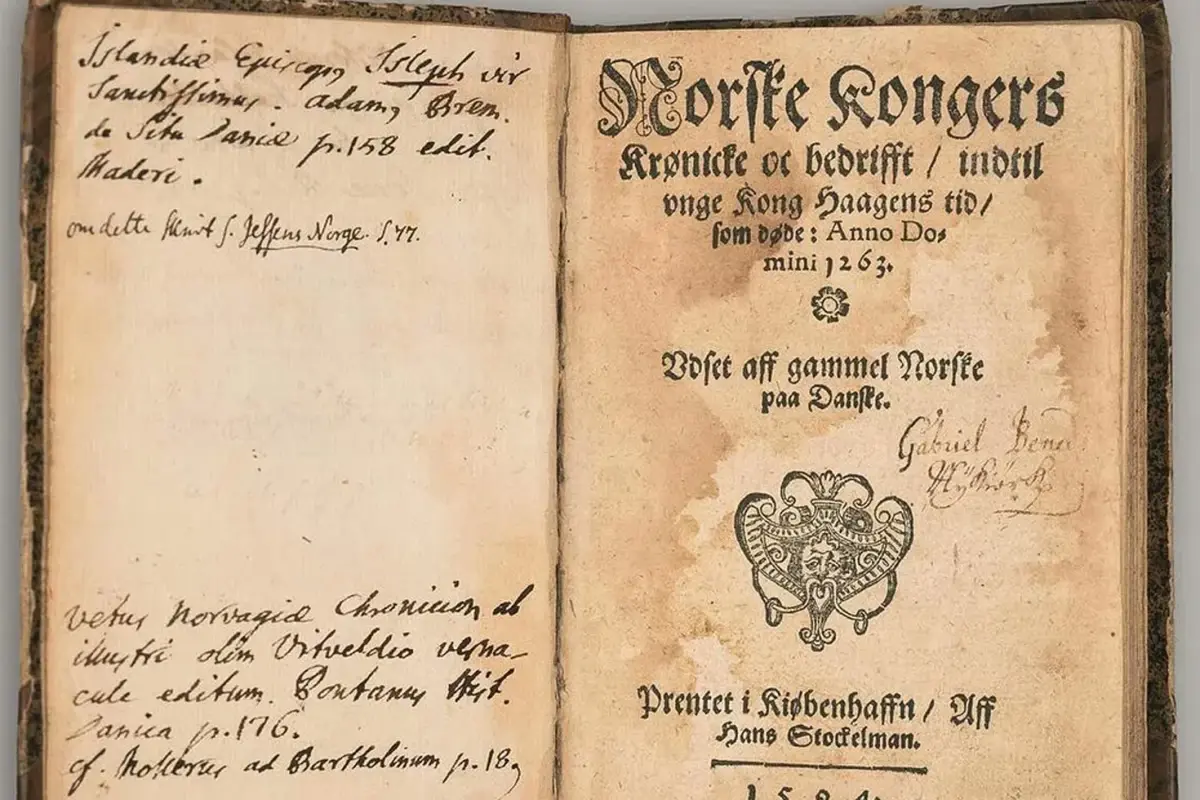 Islandiæ Episcopus Isleph vir
Sanctissimus. Adamus Brem.
de Situ Daniæ p.158 edit.
Maderi.
om dette Skrivt s. Jessens Norge. S. 77.
vetus Norvagiæ Chronicion ab
illustri olim Vitveldio verna-
cule editum. Pontanus Hist.
Danica p.176.
cf. Mollerus ad Bartholinum p.18
Norske Kongers
Krønicke oc bedrifft / indtil
vnge Kong Haagens tid /
som døde: Anno Do-
mini 1263.
Vdset aff gammel Norske
paa Danske.
Gabriel
Prentet i Kiøbenhaffn / Aff
Hans Stockelman.